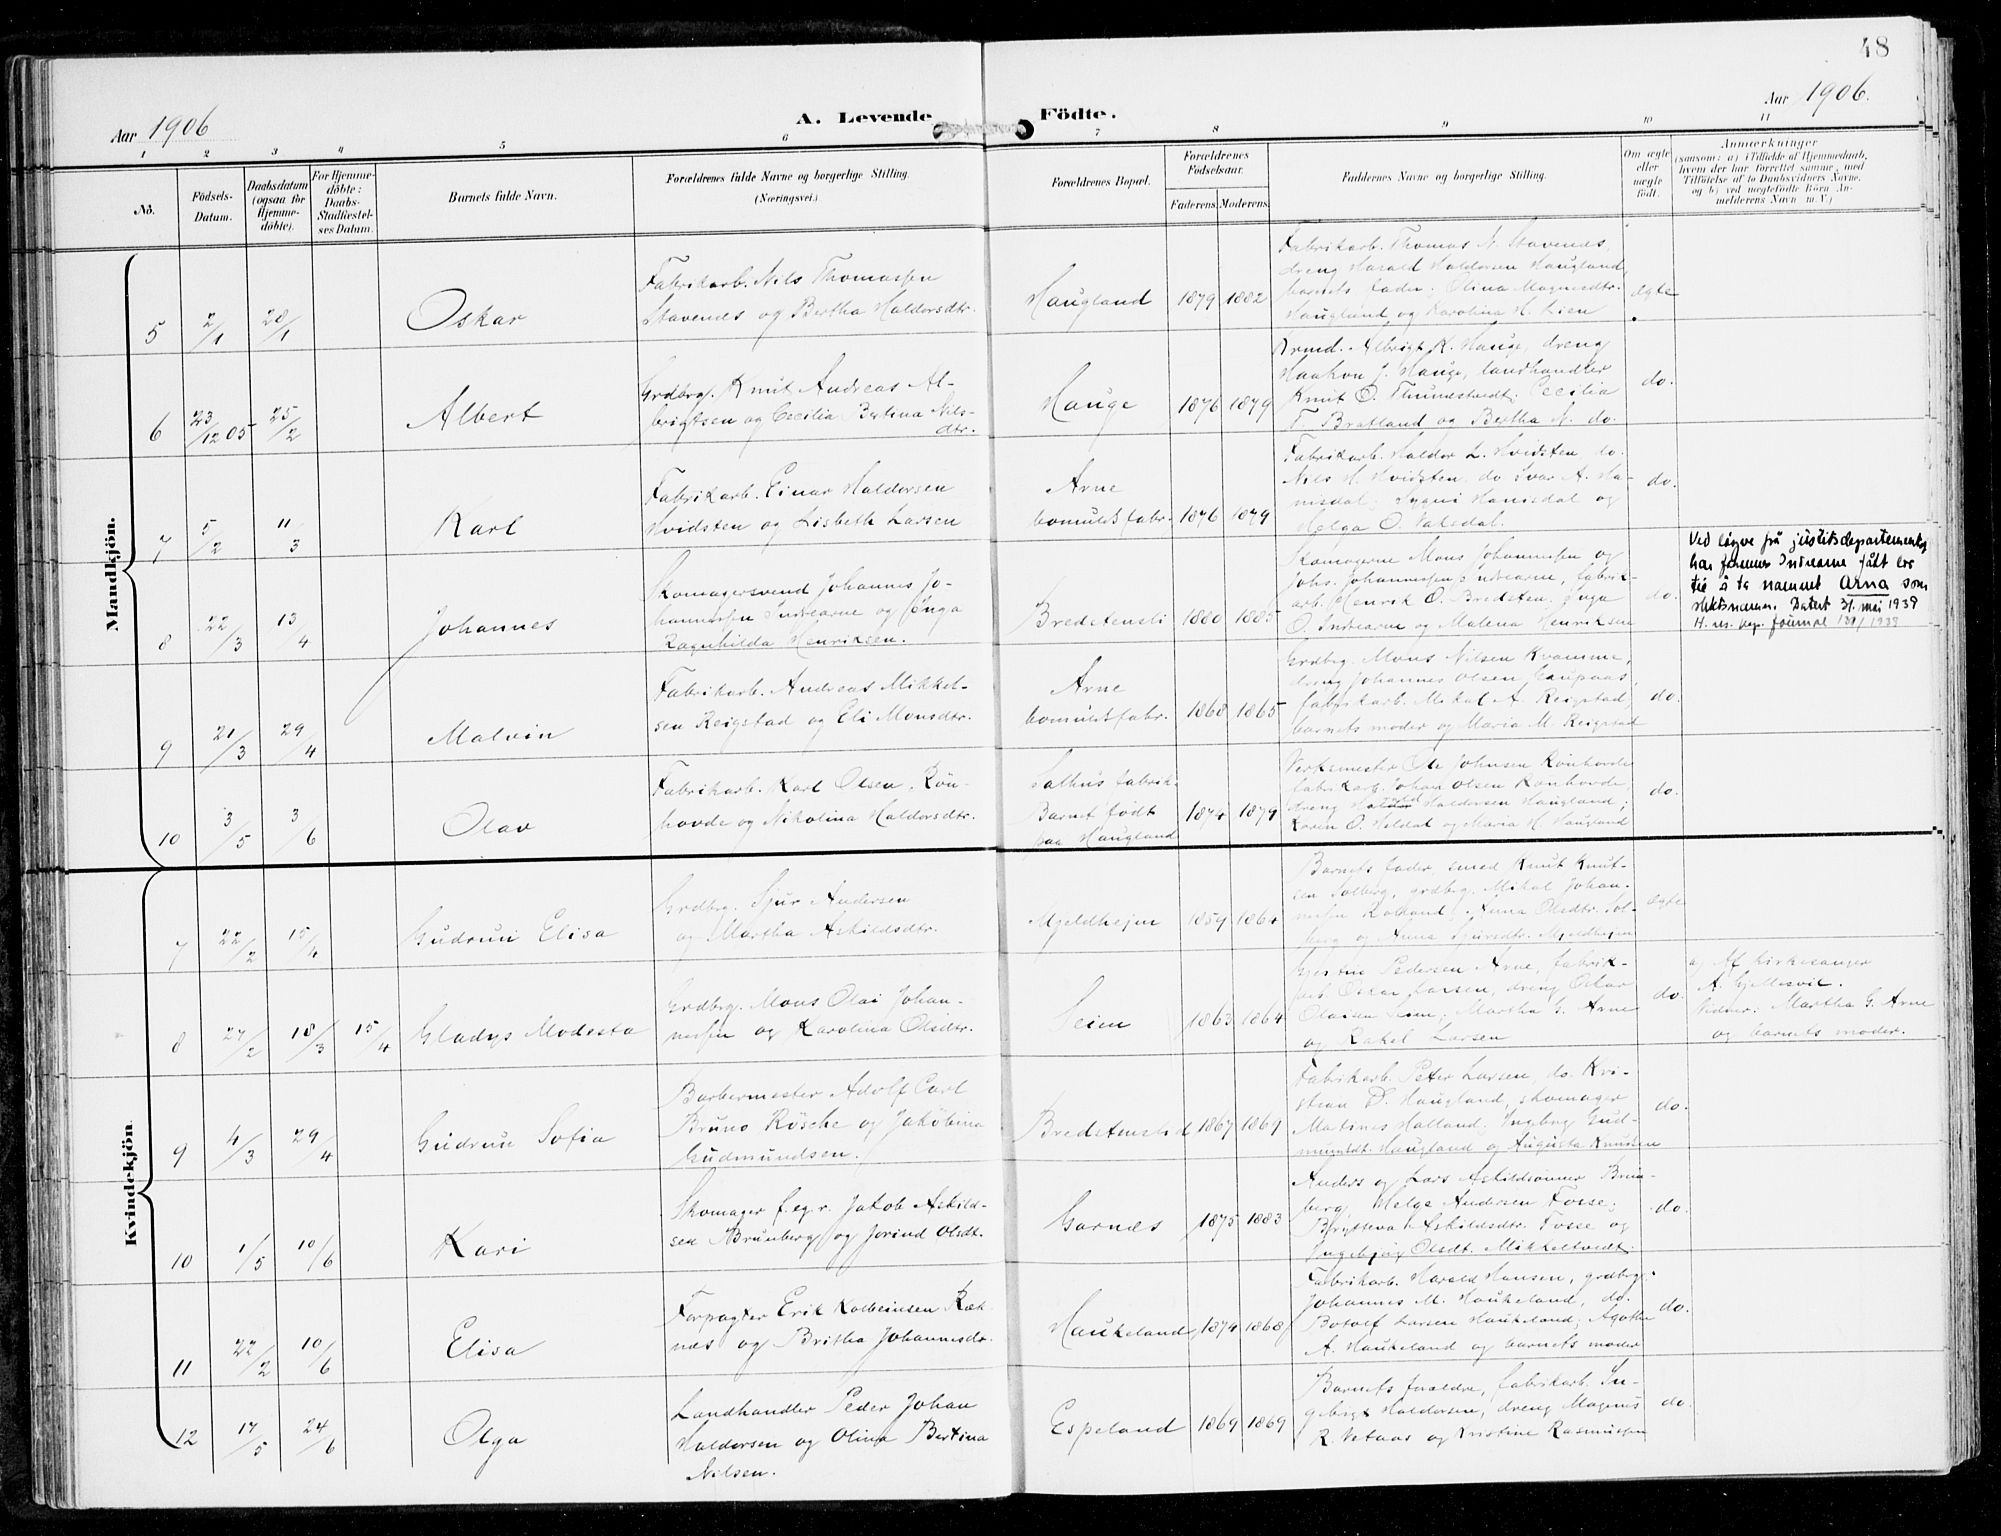 48
Aar 1906
A. Levende
Födte.
Aar 1906.
1 2 3 4 5 6 7 8 9 10 11
No.
Födsels-
Datum.
Daabsdatum
(ogsaa for
Hjemme-
döbte).
For Hjemme-
döbte:
Daabs-
Stadfæstel-
ses Datum.
Barnets fulde Navn.
Forældrenes fulde Navne og borgerlige Stilling.
(Næringsvei.)
Forældrenes Bopæl.
Forældrenes
Födselsaar.
Faderens. Moderens.
Faddernes Navne og borgerlige Stilling.
Om ægte
eller
uægte
födt.
Anmærkninger
(saasom: a) i Tilfælde af Hjemmedaab,
hvem der har forrettet samme, med
Tilföielse af to Daabsvidners Navne,
og b) ved uægtefödte Börn An-
melderens Navn m.V.)
Mandkjön.
5 2/1 28/1
Oskar
Fabrikarb. Nils Thomassen
Stavenes og Bertha Haldorsdtr.
Haugland
1879 1882
Fabrikarb. Thomas N. Stavenes,
dreng Harald Haldorsen Haugland,
barnets fader. Olina Magnesdtr.
Haugland og Karolina H. Lien
ægte
6 23/12 05 25/2
Albert
Grdbrg. Knut Andreas Al-
brigtsen og Cecilia Bertina Nils-
dtr.
Hauge
1876 1879
Albrigt K. Hauge, dreng
Haakon J. Hauge, landhandler
Knut O. Thunestvedt; Cecilia
T. Bratland og Bertha N. do.
do.
7 5/2 11/3
Karl
Fabrikarb. Einar Haldorsen
Hvidsten og Lisbeth Larsen
Arne
bomuldsfabr.
1876 1879
Fabrikarb. Haldor L. Hvidsten, do.
Nils H. Hvidsten, do Ivar A. Ha-
nisdal; Hanisdal og
Helga O. Valsdal.
do.
8 22/3 13/4
Johannes
Skomagersvend Johannes Jo-
hannessen Indrearne og Inga
Ragnhilda Henriksen.
Bredstensli
1880 1885
Skomagerne Mons Johannessen og
Johs. Johannessen Indrearne, fabrik-
arb. Henrik O. Bredsten. Inga
O. Indrearne og Malena Henriksen
do.
Ved løyve frå justisdepartementet
har Johannes Indrearne fått lov
til å ta namnet Arna som
slektsnamn. Datert 31. mai 1939
H. res. kap. journal 189/1939
9 21/3 29/4
Malvin
Fabrikarb. Andreas Mikkel-
sen Reigstad og Eli Monsdtr.
Arne
bomuldsfabr.
1868 1865
Grdbrg. Mons Nilsen Kvamme,
dreng Johannes Olsen Gaupaas,
fabrikarb. Mikal A. Reigstad,
barnets moder og Maria M. Reigstad
do.
10 3/5 3/6
Olav
Fabrikarb. Karl Olsen Røn-
hovde og Nikolina Haldorsdtr.
Salhus fabrik.
Barnet født
paa Haugland
1874 1879
Verksmester Ole Johnsen Rønhovde
fabrikarb. Johan Olsen Rønhovde,
dreng Harald Haldorsen Haugland;
Karen O. Heldal og Maria H. Haugland
do.
Kvindekjön.
7 22/2 15/4
Gudrun Elisa
Grdbrg. Sjur Andersen
og Martha Askildsdtr.
Mjeldhejm
1859 1864
Barnets fader, smed Knut Knut-
sen Solberg, grdbrg. Mikal Johan-
nessen Rolland; Anna Olsdtr. Sol-
berg og Anna Sjursdtr. Mjeldhejm
ægte
8 27/2 18/3 15/4
Gladys Modesta
Grdbrg. Mons Olai Johan-
nessen og Karolina Olsdtr.
Seim
1863 1864
Gjertin Pedersen Arne, fabrik-
arb. Oscar Larsen, dreng Oskar
Olaisen Seim; Martha G. Arne
og Rakel Larsen
do.
a) Af kirkesanger
A. Gjellesvik.
Vidner: Martha G. Arne
og barnets moder.
9 4/3 29/4
Gudrun Sofia
Barbermester Adolf Carl
Bruno Rösche og Jakobina
Gudmundsen.
Bredstenslid
1867 1869
Fabrikarb. Peter Larsen, do. Kri-
stian D. Haugland, skomager
Matines Halland; Ingborg Gud-
mundsdt. Haugland og Augusta Knutsen
do.
10 1/5 10/6
Kari
Skomager f. eg. r. Jakob Askild-
sen Brunberg og Jorind Olsdt.
Garnæs
1875 1883
Anders og Lars Askildsønner Brun-
berg, Helge Andersen Fosse;
Bryttéva Askildsdtr. Fosse og
Ingebjør Olsdt. Mikkeltvedt.
do.
11 22/2 10/6
Elisa
Forpagter Erik Kolbeinsen Ræk-
næs og Britha Johannesdr.
Haukeland
1874 1868
Fabrikarb. Harald Hansen, grdbrg.
Johannes M. Haukeland, do.
Botolf Larsen Haukeland; Agathe
A. Haukeland og barnets moder
do.
12 17/5 24/6
Olga
Landhandler Peder Johan
Haldorsen og Olina Bertina
Nilsen.
Espeland
1869 1869
Barnets forældre, fabrikarb. In-
gebrigt Haldorsen, dreng Magnus
R. Vetaas og Kristine Rasmussen
do.